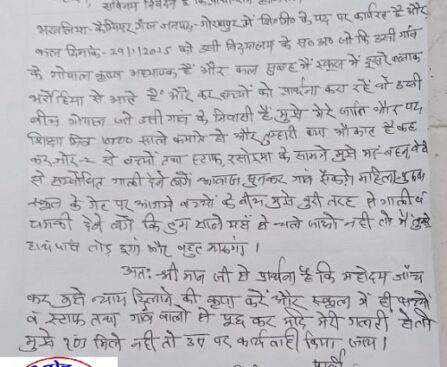 सविनय निवेदन है कि
भरवलिया कैम्पियर गंज जनपद- गोरखपुर में शि०मि० के पद पर कार्यरत है और
कल दिनांक- 29।1।2025 को उसी विद्यालय के स० अ० जो कि उसी गाँव
के गोपाल हैं और कल सुबह में स्कूल में दूसरे
से आते हैं और कर बच्चों को प्रार्थना करा रहे थे उसी
बीच गोपाल जो उसी गाँव के निवासी हैं, मुझे मेरे जाति और पद
शिक्षा मित्र साले कमाते हो और तुम्हारी क्या औकात है कह
कर जोर-2 से बच्चों तथा स्टाफ रसोइया के सामने मुझे माँ बहन
से सम्बोधित गाली देने लगे आवाज सुनकर गाँव सैकड़ो महिला-पुरुष
स्कूल के गेट पर आगये बच्चों के बीच मुझे बुरी तरह से गाली व
धमकी देने लगे कि तुम यहाँ से चले जाओ नही तो मैं तुझे
हाथ पांव तोड़ दूंगा और बहुत मारूंगा।
अत: श्री मान जी से प्रार्थना है कि महोदय जाँच
कर मुझे न्याय दिलाने की कृपा करें और स्कूल में ही बच्चों
व स्टाफ तथा गाँव वालों से पूछ कर यदि मेरी गलती होती
मुझे दण्ड मिले नही तो उन पर कार्यवाही किया जाय।
प्रार्थी-